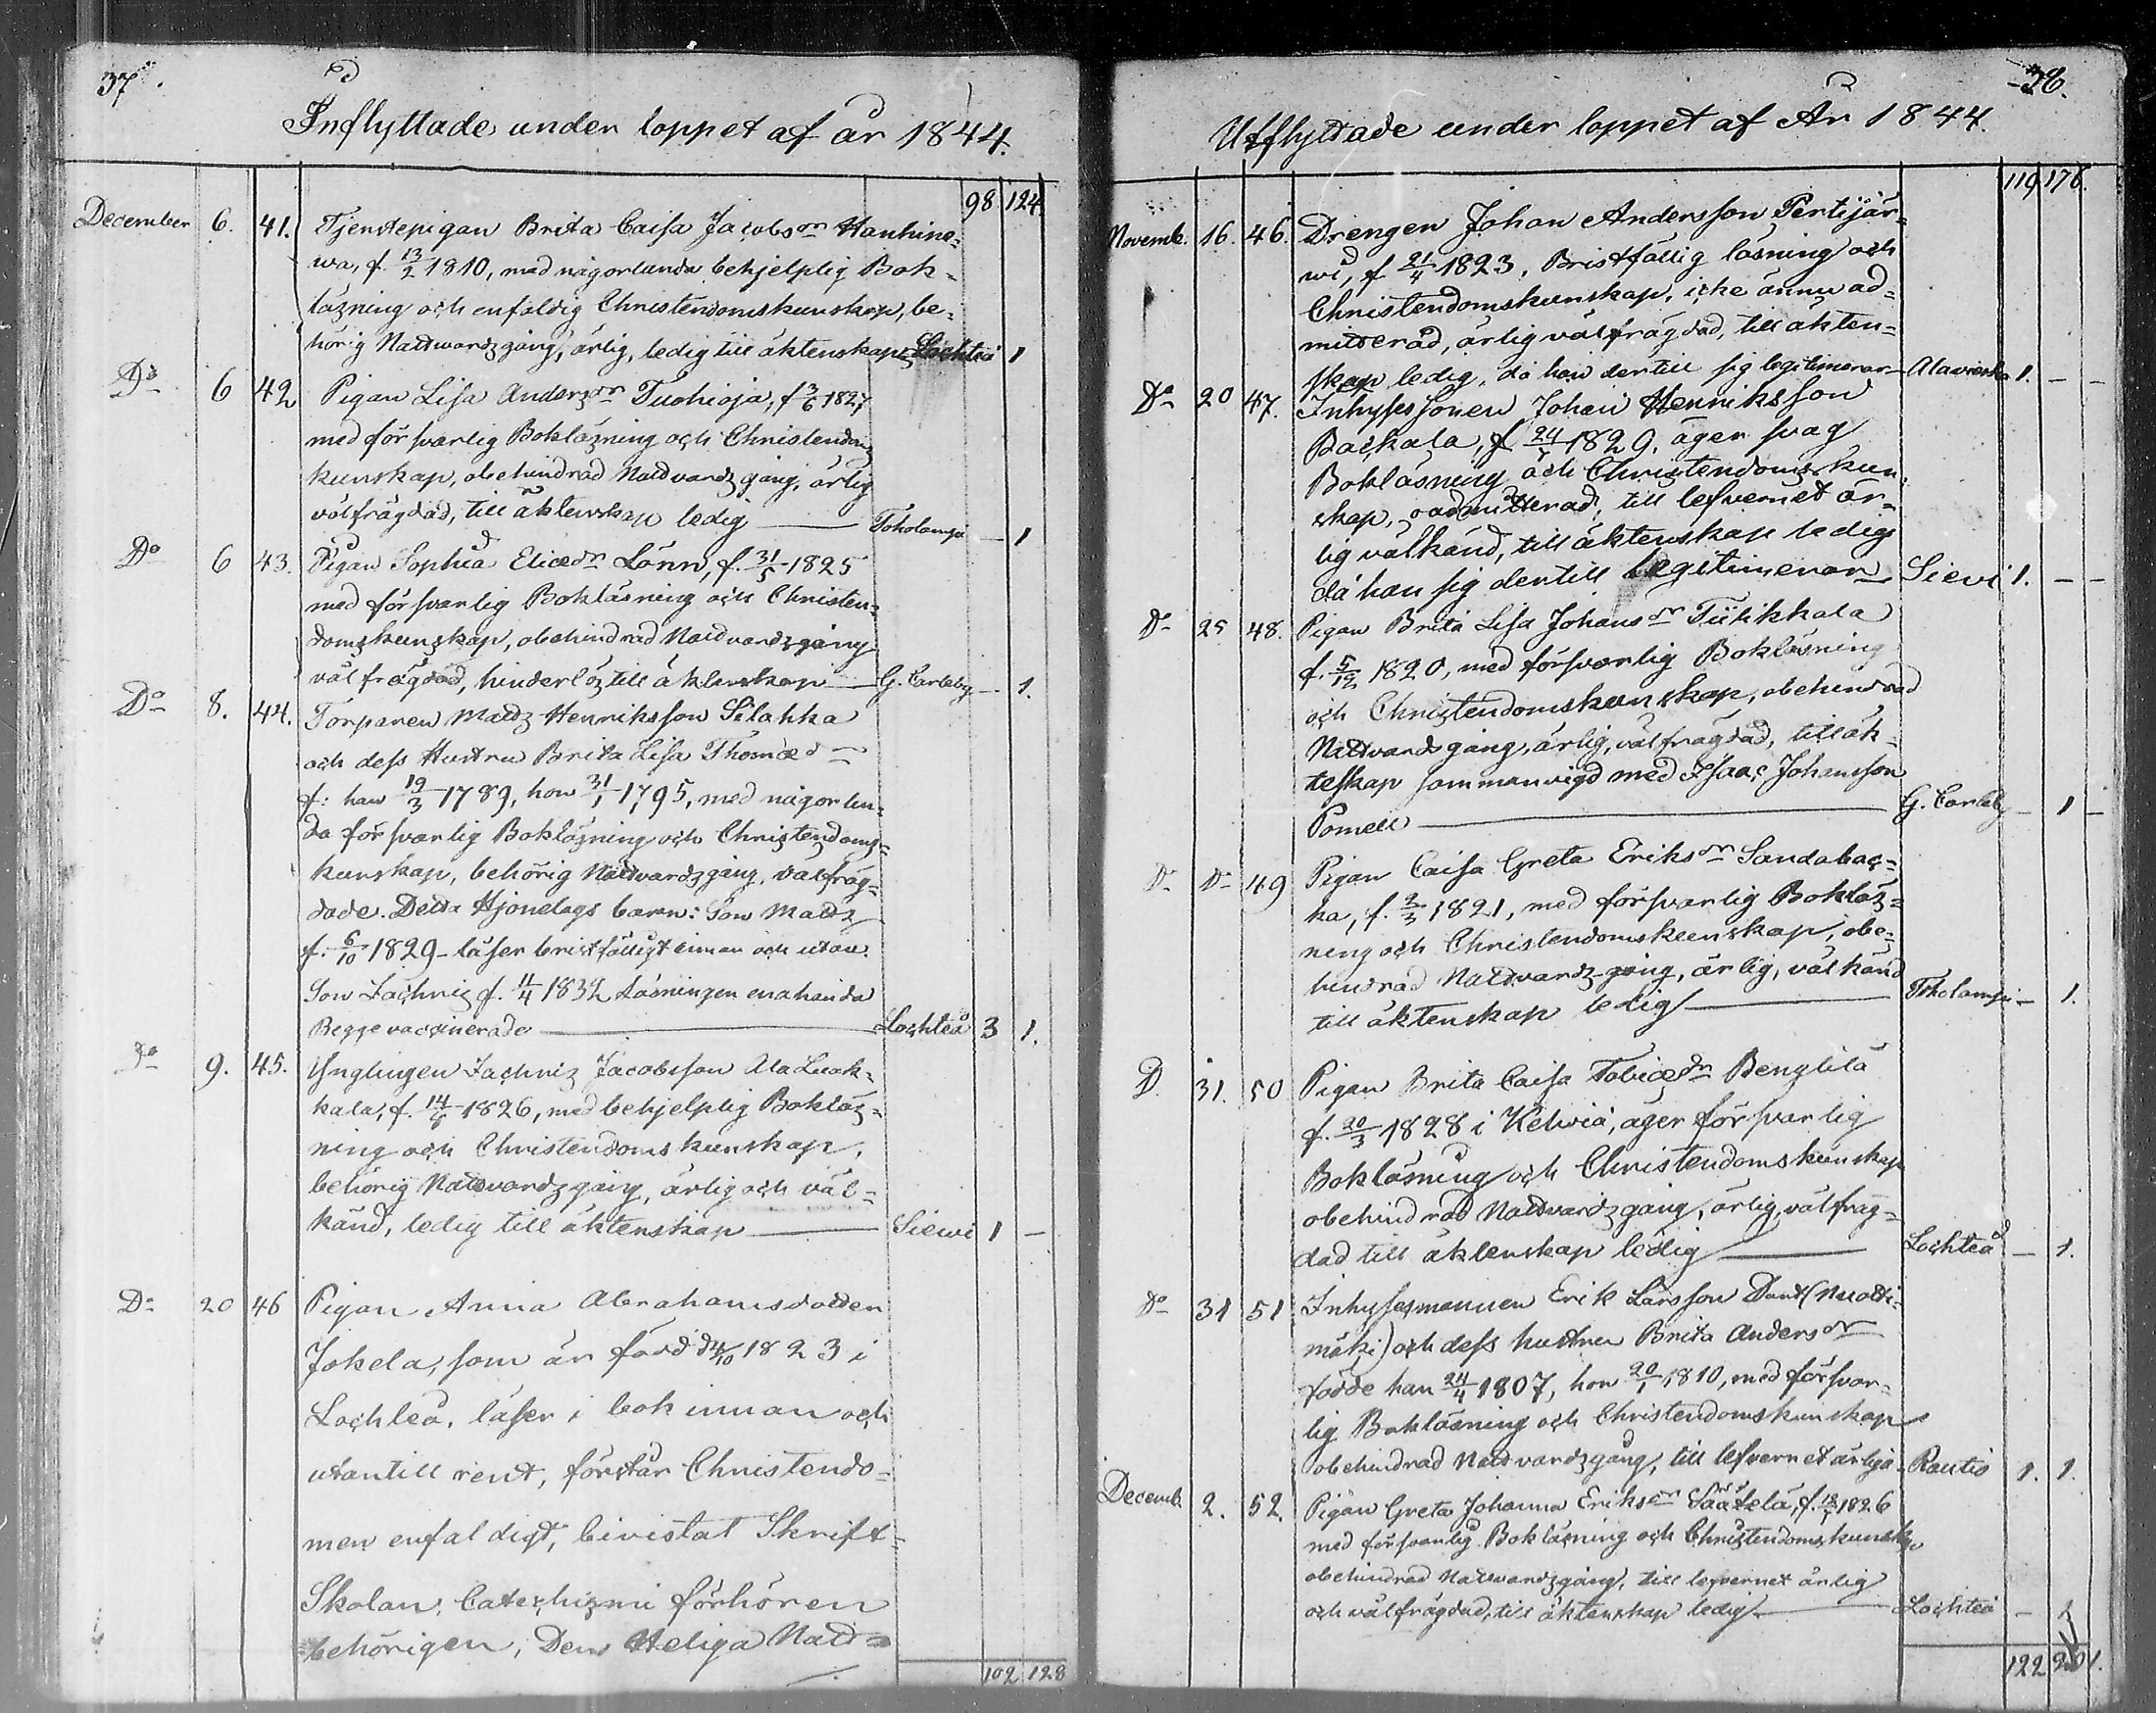 37.
Inflyttade under loppet af år 1844.
98 124.
December 6. 41. Tjenstepigan Brita Caisa Jacobsdr Hanhine-
wa, f. 13/2 1810, med någorlunda behjelplig Bok-
läsning och enfaldig Christendomskunskap, be-
hörig Nattwardsgång, ärlig, ledig till äktenskap Lochteå 1
Do 6 42 Pigan Lisa Andersdr Tuohioja, f 3/6 1827
med försvarlig Bokläsning och Christendoms
kunskap, obehindrad Nattvardsgång, ärlig
välfrägdad, till äktenskap ledig — Toholampi — 1
Do 6 43. Pigan Sophia Eliædr Lönn, f. 31/5 1825
med försvarlig Bokläsning och Christen-
domskunskap, obehindrad Nattvardsgång
välfrägdad, hinderlös till äktenskap — G. Carleby — 1.
Do 8. 44. Torparen Matts Henriksson Silahka
och dess Hustru Brita Lisa Thomædr
f: han 19/3 1789, hon 31/1 1795, med någorlun-
da försvarlig Bokläsning och Christendoms-
kunskap, behörig Nattvardsgång, välfräg-
dade. Detta Hjonelags barn: Son Matts
f. 6/10 1829 - läser bristfälligt innan och utan.
Son Zachris f. 11/4 1832 Läsningen enahanda
Begge vaccinerade — Lochteå 3 1.
Do 9. 45. Ynglingen Zachris Jacobsson Ala Luok-
kala, f. 14/6 1826, med behjelplig Bokläs-
ning och Christendoms kunskap,
behörig Nattvardsgång, ärlig och väl-
känd, ledig till äktenskap — Siewi 1 —
Do 20 46 Pigan Anna Abrahamsdotter
Jokela, som är född d 4/10 1823 i
Lochteå, läser i bok innan och
utantill rent, förstår Christendo-
men enfaldigt, bivistat Skrift-
Skolan, Catechismi förhören
behörigen, Den Heliga Natt-
102 128
38.
Utflyttade under loppet af År 1844.
119 176.
Novemb. 16. 46. Drengen Johan Andersson Pertijär-
wi, f 21/4 1823, Bristfällig läsning och
Christendomskunskap, icke ännu ad-
mitterad, ärlig välfrägdad, till äkten-
skap ledig, då han dertill sig legitimerar — Alavieska 1. — —
Do 20 47. Inhyses Sonen Johan Henriksson
Backala, f 24/7 1829, äger svag
Bokläsning och Christendomskun-
skap, oadmitterad, till lefvernet är-
lig välkänd, till äktenskap ledig
då han sig dertill legitimerar — Sievi 1. — —
Do 25 48. Pigan Brita Lisa Johansdr Tiitikkala
f. 5/12 1820, med försvarlig Bokläsning
och Christendomskunskap, obehindrad
Nattvardsgång, ärlig, välfrägdad, till äk-
teskap sammanvigd med Isaac Johansson
Pomell — G. Carleby — 1 —
Do Do 49 Pigan Caisa Greta Eriksdr Sandabac-
ka, f. 2/3 1821, med försvarlig Bokläs-
ning och Christendomskunskap, obe-
hindrad Nattvardsgång, ärlig, välkänd
till äktenskap ledig — Toholampi — 1.
D. 31. 50 Pigan Brita Caisa Tobiædr Benglilä
f. 20/3 1828 i Kelviå, äger försvarlig
Bokläsning och Christendomskunskap
obehindrad Nattvardsgång, ärlig, välfräg-
dad till äktenskap ledig — Lochteå — 1.
Do 31 51 Inhysesmannen Erik Larsson Dant (Nuotti-
mäki) och dess hustru Brita Andersdr
födde han 24/4 1807, hon 20/1 1810, med försvar-
lig Bokläsning och Christendomskunskap
obehindrad Nattvardsgång, till lefvernet ärliga — Rautio 1. 1.
Decemb. 2. 52. Pigan Greta Johanna Eriksdr Säätelä, f. 1826
med försvarlig Bokläsning och Christendomskunskap
obehindrad Nattvardsgång, till lefvernet ärlig
och välfrägdad, till äktenskap ledig — Lochteå — 1
122 201.